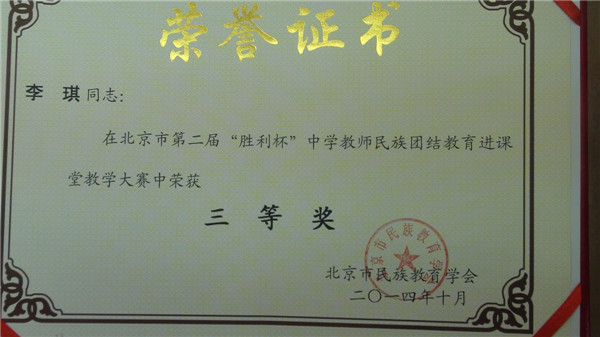 荣誉证书
李 琪 同志：
在北京市第二届“胜利杯”中学教师民族团结教育进课
堂教学大赛中荣获
三 等 奖
北京市民族教育学会
北京市民族教育学会
二〇一四年十月